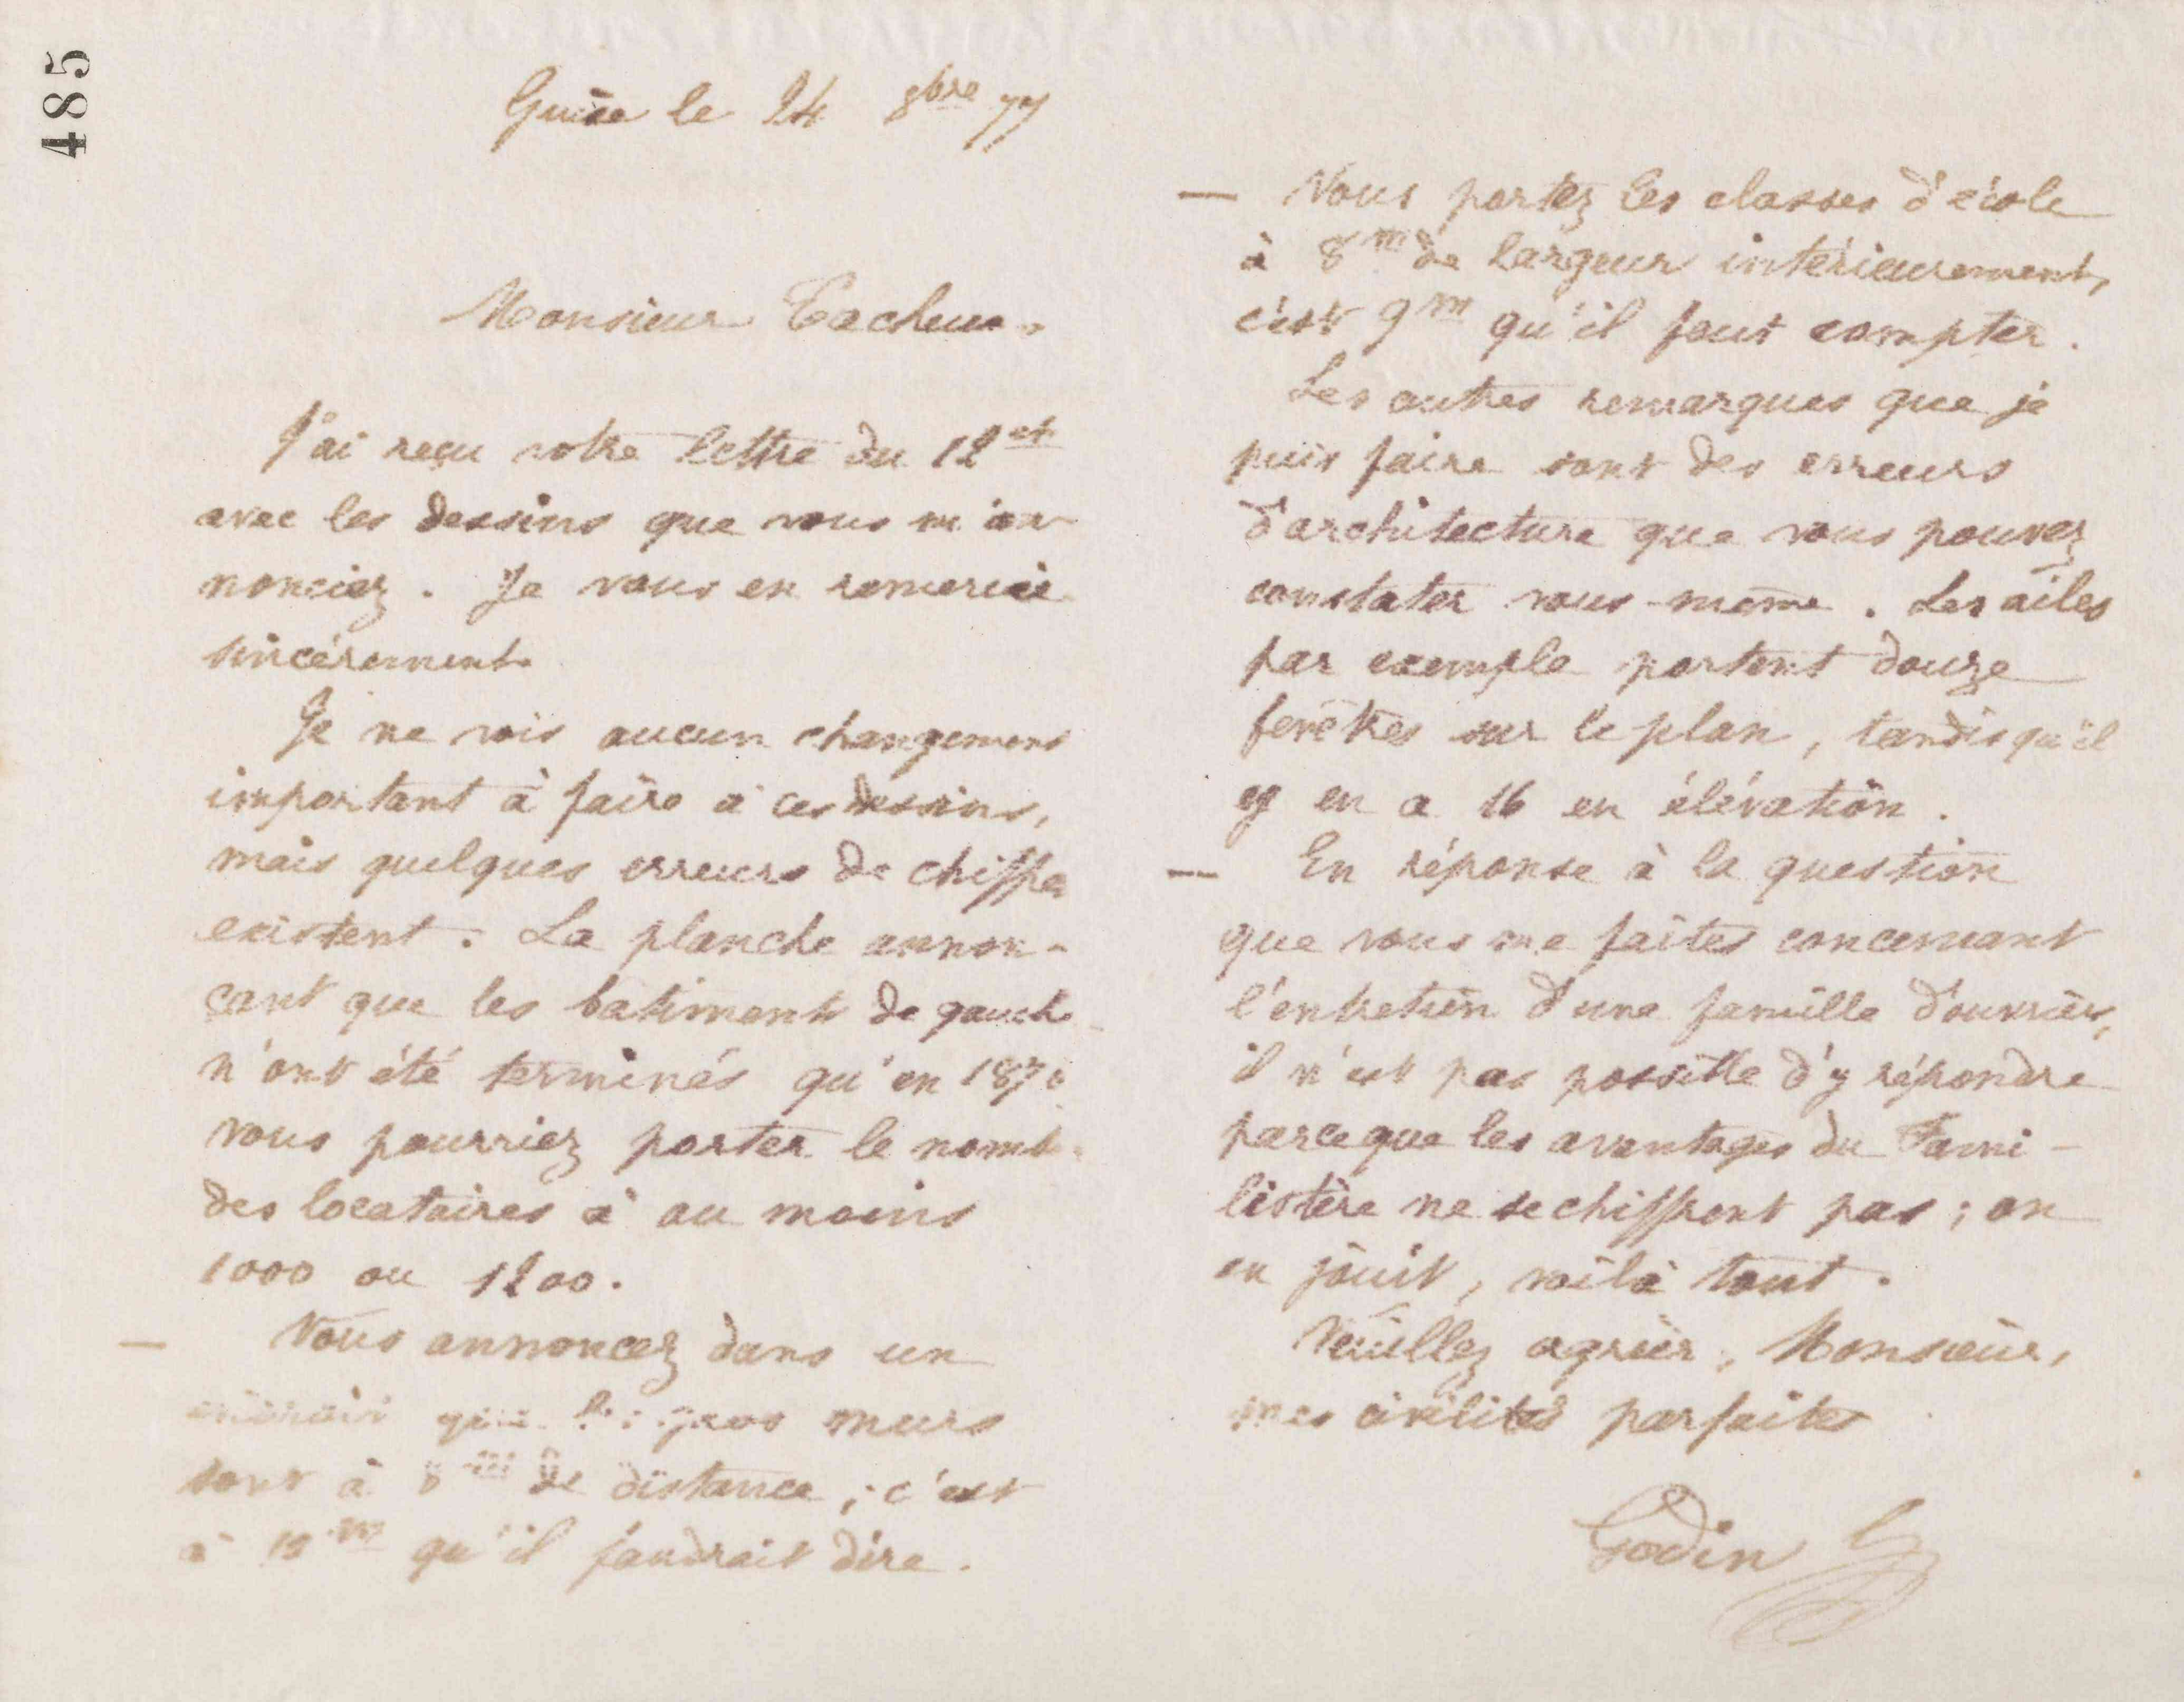 485
Guise le 24 8bre 77
Monsieur Cacheux.
J'ai reçu votre lettre du 12 ct
avec les dessins que vous m'an-
nonciez. Je vous en remercie
sincèrement.
Je ne vois aucun changement
important à faire à ces dessins,
mais quelques erreurs de chiffres
existent. La planche annon-
çant que les batiments de gauche
n'ont été terminés qu'en 1870
vous pourriez porter le nombre
des locataires à au moins
1000 ou 1200.
— Vous annoncez dans un
que les gros murs
sont à 8m de distance ; c'est
à 10m qu'il faudrait dire.
— Vous portez les classes d'école
à 8m de largeur intérieurement,
c'est 9m qu'il faut compter.
Les autres remarques que je
puis faire sont des erreurs
d'architecture que vous pouvez
constater vous-même. Les ailes
par exemple portent douze
fenêtres sur le plan, tandis qu'il
y en a 16 en élévation.
— En réponse à la question
que vous me faites concernant
l'entretien d'une famille d'ouvrier,
il n'est pas possible d'y répondre
parceque les avantages du Fami-
listère ne se chiffrent pas ; on
en jouit, voilà tout.
Veuillez agréer, Monsieur,
mes civilités parfaites
Godin